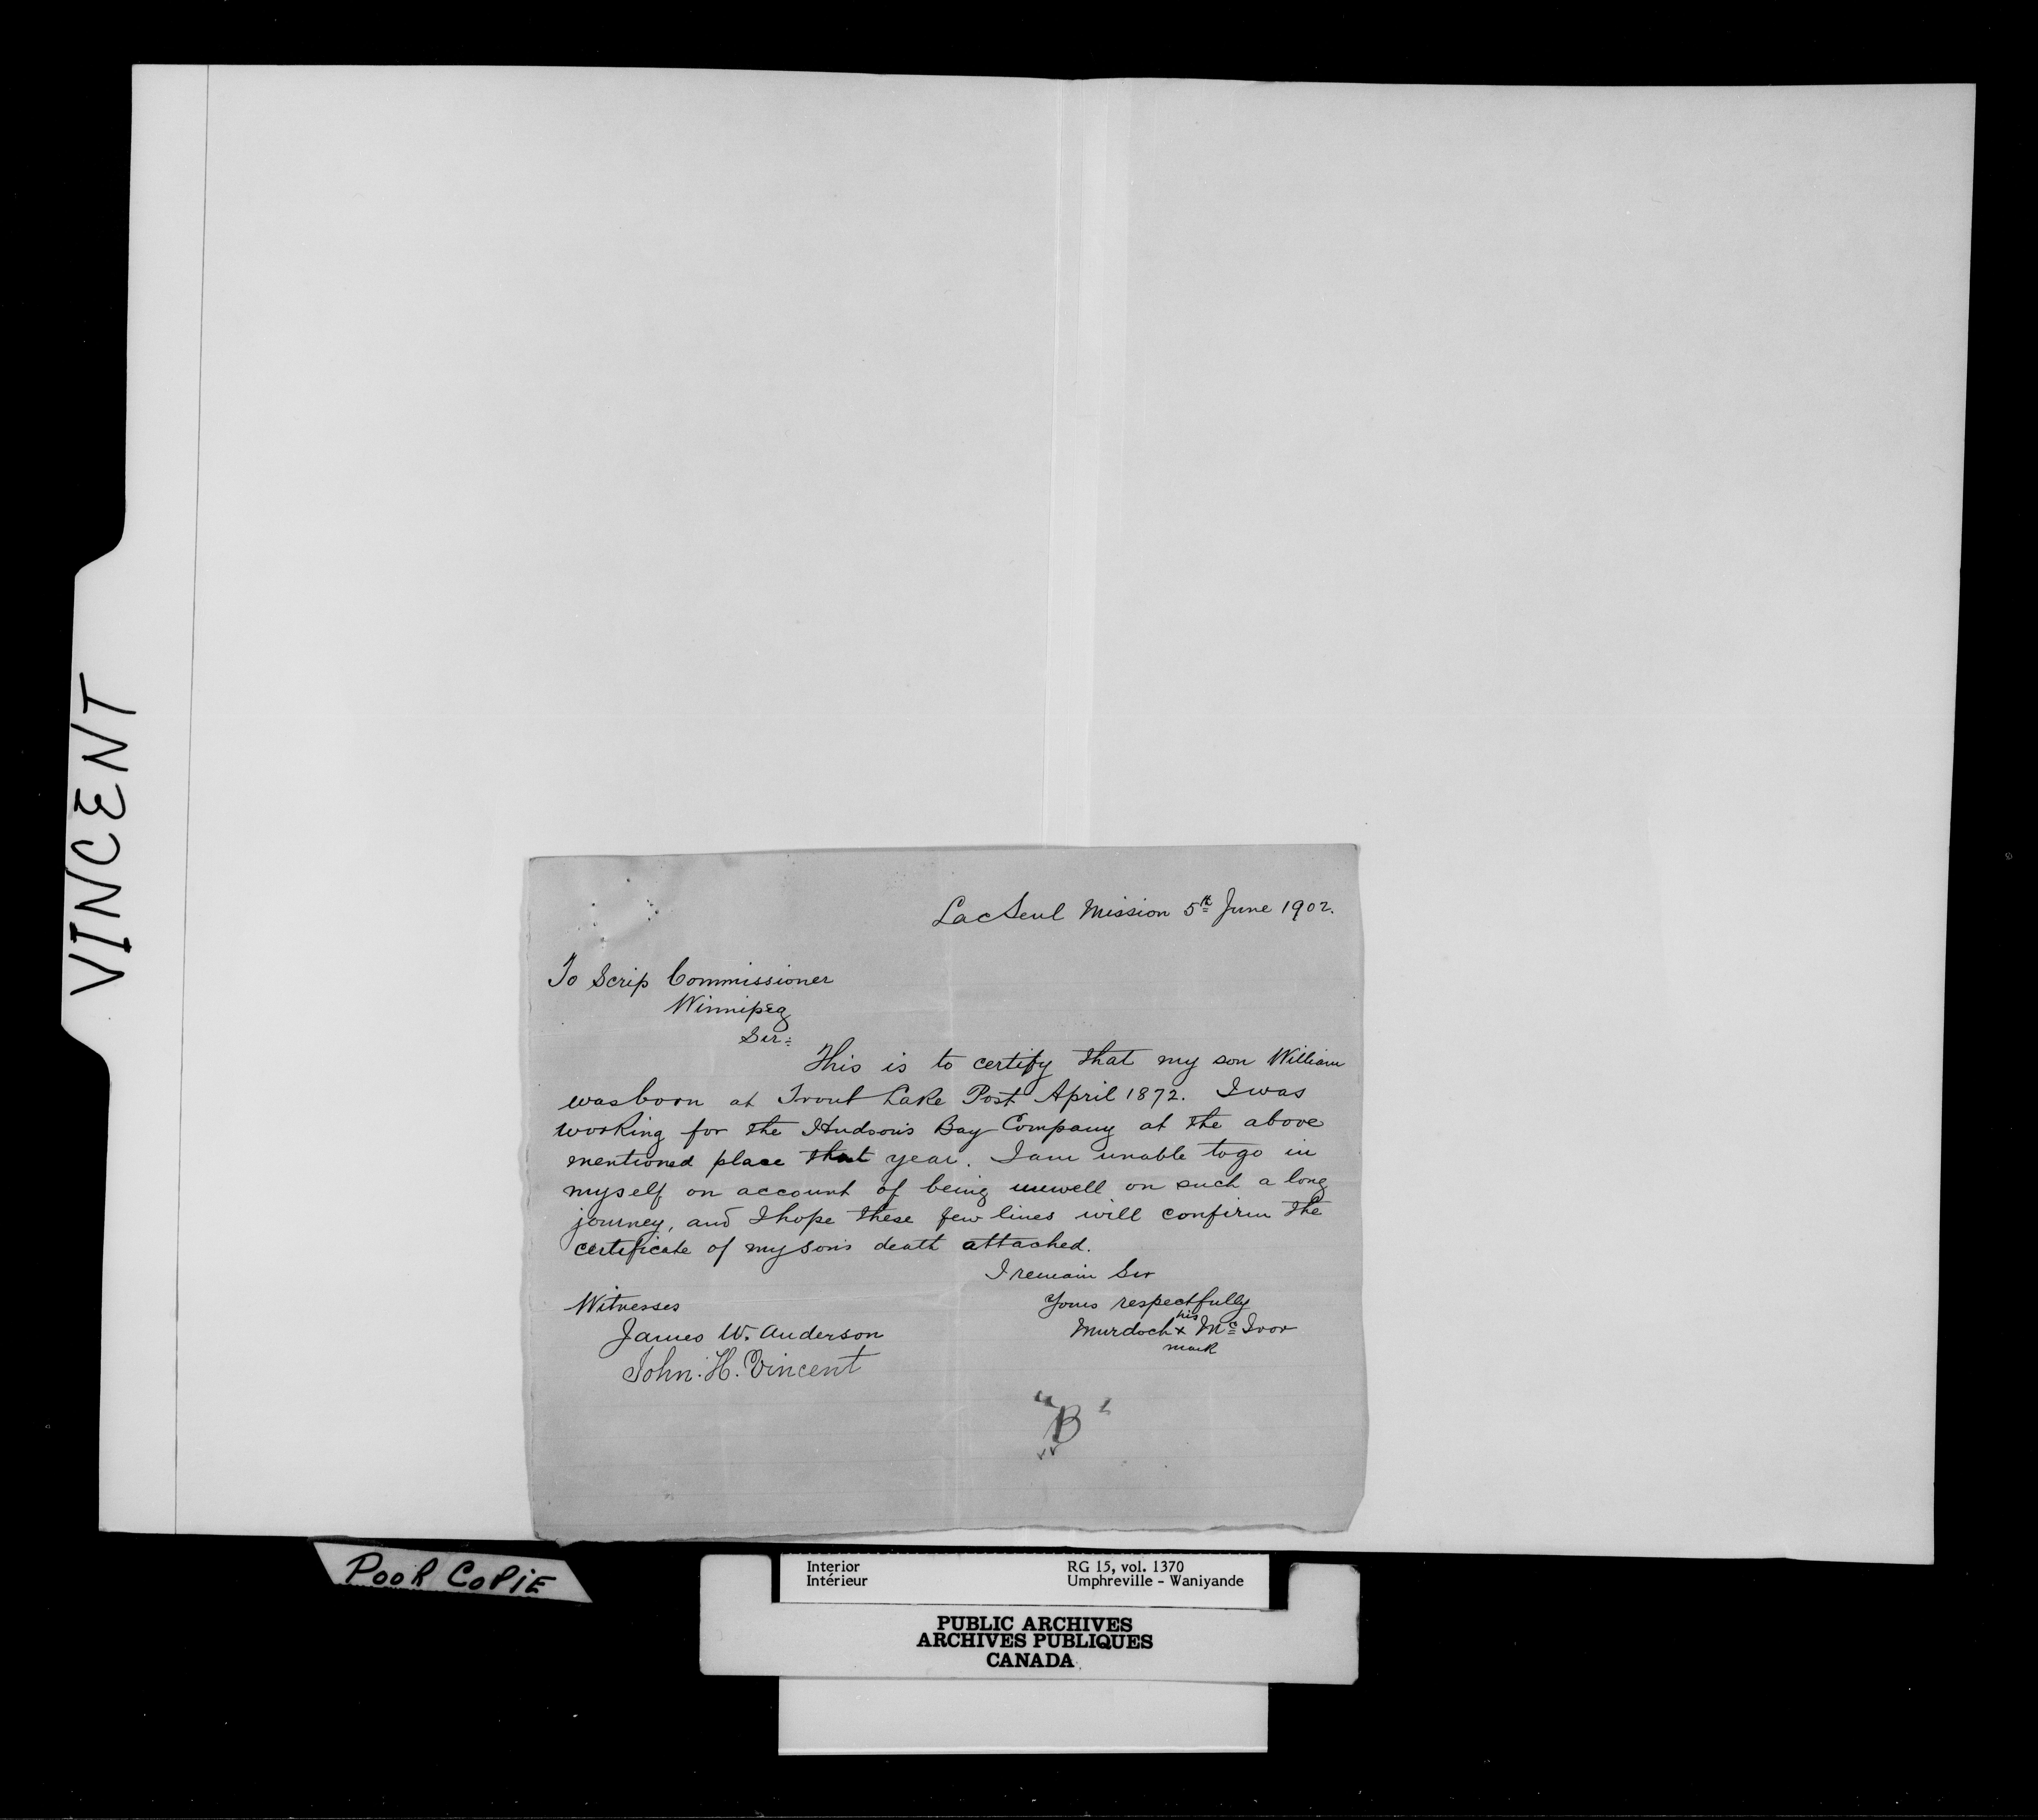 VINCENT
Lac Seul Mission 5th June 1902.
To Scrip Commissioner
Winnipeg
Sir:
This is to certify that my son William
was born at Trout Lake Post April 1872. I was
working for the Hudson's Bay Company at the above
mentioned place that year. I am unable to go in
myself on account of being unwell on such a long
journey, and I hope these few lines will confirm the
certificate of my son's death attached.
I remain Sir
Yours respectfully
his
Murdoch x Mc Ivor
mark
Witnesses
James W. Anderson
John. H. Vincent
"B"
POOR COPIE
Interior
Intérieur
RG 15, vol. 1370
Umphreville - Waniyande
PUBLIC ARCHIVES
ARCHIVES PUBLIQUES
CANADA